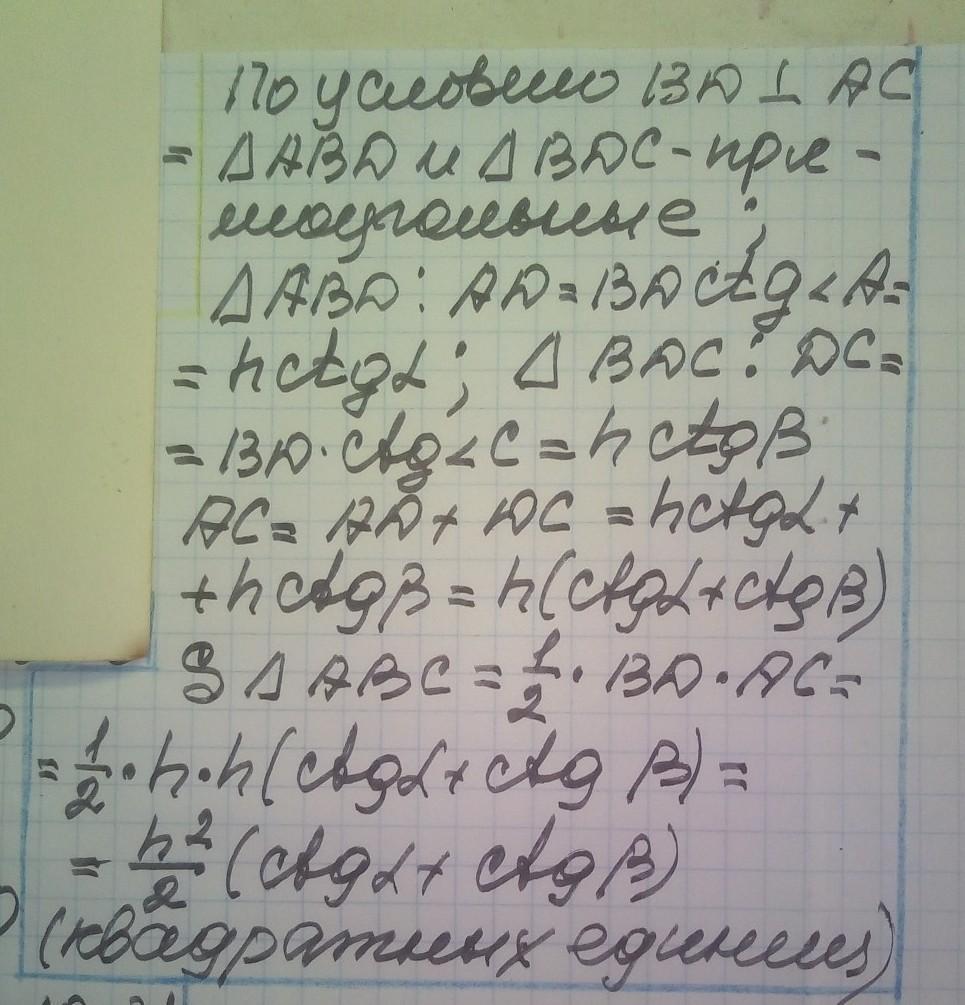 По условию BD ⊥ AC
= ΔABD и ΔBDC - пря -
моугольные ;
ΔABD : AD = BD ctg < A =
= h ctg α ; Δ BDC : DC =
= BD · ctg < C = h ctg β
AC = AD + DC = h ctg α +
+ h ctg β = h ( ctg α + ctg β )
S Δ ABC = 1/2 · BD · AC =
= 1/2 · h · h ( ctg α + ctg β ) =
= h²/2 ( ctg α + ctg β )
(квадратных единиц)